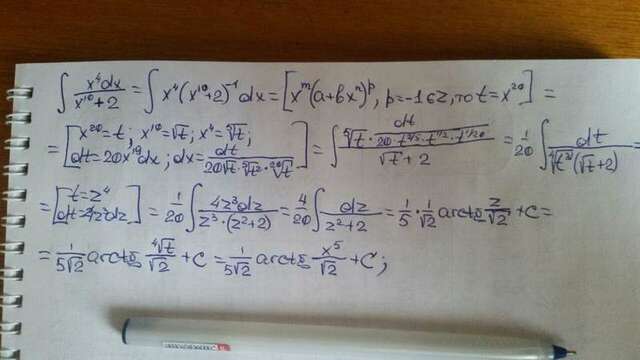 ∫ x⁴dx/(x¹⁰+2) = ∫ x⁴(x¹⁰+2)⁻¹dx = [xᵐ(a+bxⁿ)ᵖ, p=-1∈Z, то t=x²⁰] =
= [x²⁰=t; x¹⁰=√t; x⁴=⁵√t; dt=20x¹⁹dx; dx=dt/(20√t·⁵√t²·²⁰√t)] = ∫ (⁵√t · dt/(20·t^(2/5)·t^(1/2)·t^(1/20)))/(√t+2) = 1/20 ∫ dt/(⁴√t³(√t+2)) =
= [t=z⁴; dt=4z³dz] = 1/20 ∫ 4z³dz/(z³·(z²+2)) = 4/20 ∫ dz/(z²+2) = 1/5 · 1/√2 arctg z/√2 + C =
= 1/(5√2) arctg ⁴√t/√2 + C = 1/(5√2) arctg x⁵/√2 + C;